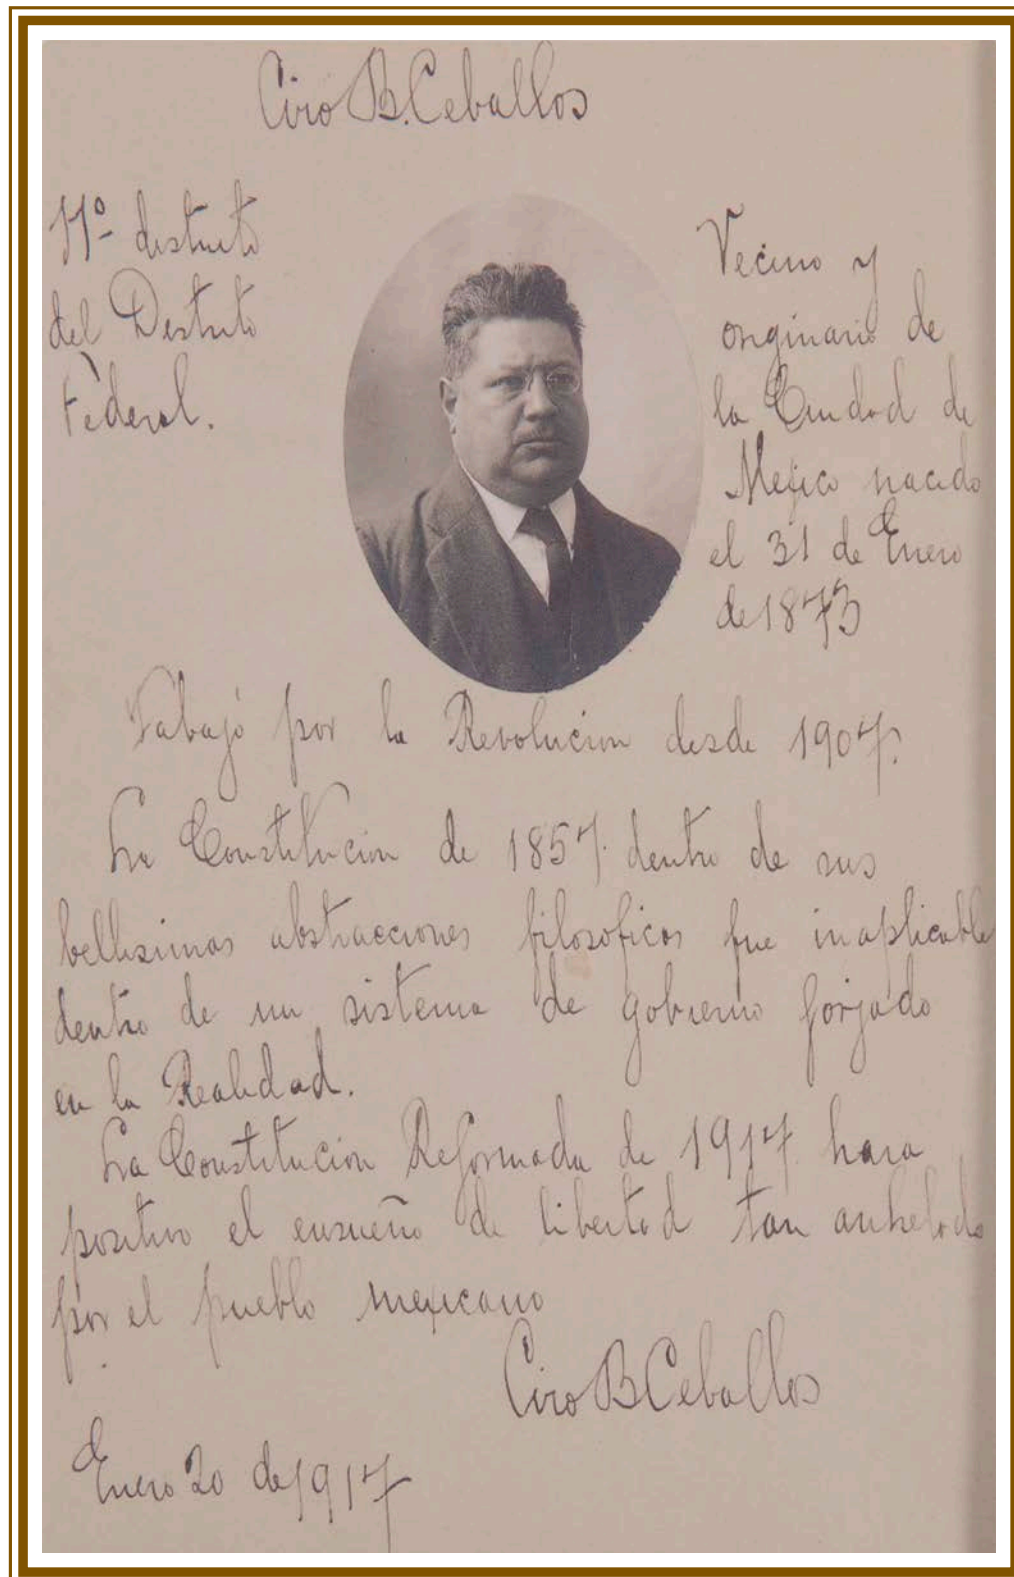 Ciro B. Ceballos
11º distrito
del Distrito
Federal.
Vecino y
originario de
la Ciudad de
Mejico nacido
el 31 de Enero
de 1873
Tabajó por la Revolucion desde 1907.
La Constitucion de 1857. dentro de sus
bellisimas abstracciones filosoficas fue inaplicable
dentro de un sistema de gobierno forjado
en la Realidad.
La Constitucion Reformada de 1917. hara
positivo el ensueño de libertad tan anhelado
por el pueblo mejicano
Ciro B Ceballos
Enero 20 de 1917